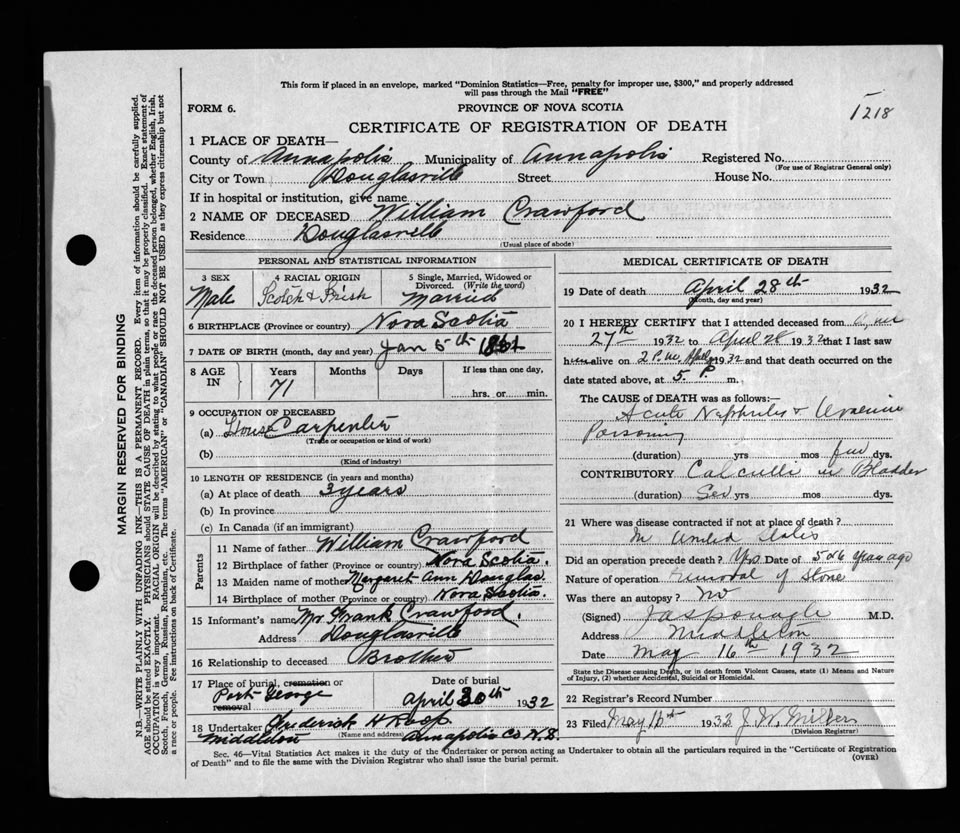 This form if placed in an envelope, marked "Dominion Statistics—Free, penalty for improper use, $300," and properly addressed
will pass through the Mail "FREE"
FORM 6.
PROVINCE OF NOVA SCOTIA
1218
CERTIFICATE OF REGISTRATION OF DEATH
1 PLACE OF DEATH—
County of Annapolis Municipality of Annapolis Registered No.
(For use of Registrar General only)
City or Town Douglasville Street House No.
If in hospital or institution, give name
2 NAME OF DECEASED William Crawford
Residence Douglasville
(Usual place of abode)
PERSONAL AND STATISTICAL INFORMATION
3 SEX
Male
4 RACIAL ORIGIN
Scotch & Irish
5 Single, Married, Widowed or
Divorced. (Write the word)
Married
6 BIRTHPLACE (Province or country) Nova Scotia
7 DATE OF BIRTH (month, day and year) Jan 5th 1861
8 AGE
IN
Years
71
Months
Days
If less than one day,
hrs. or min.
9 OCCUPATION OF DECEASED
(a) House Carpenter
(Trade or occupation or kind of work)
(b)
(Kind of industry)
10 LENGTH OF RESIDENCE (in years and months)
(a) At place of death 3 years
(b) In province
(c) In Canada (if an immigrant)
Parents
11 Name of father William Crawford
12 Birthplace of father (Province or country) Nova Scotia.
13 Maiden name of mother Margaret Ann Douglas.
14 Birthplace of mother (Province or country) Nova Scotia.
15 Informant's name Mr Frank Crawford.
Address Douglasville
16 Relationship to deceased Brother
17 Place of burial, cremation or
removal
Port George
Date of burial
April 30th 1932
18 Undertaker Frederick H Roop
(Name and address)
Middleton Annapolis Co. N.S.
MEDICAL CERTIFICATE OF DEATH
19 Date of death April 28th 1932
(Month, day and year)
20 I HEREBY CERTIFY that I attended deceased from
27th 1932 to April 28 1932 that I last saw
him alive on 2 P.M. Apl 1932 and that death occurred on the
date stated above, at 5. P. m.
The CAUSE of DEATH was as follows:—
Acute Nephritis & Uraemic
Poisoning
(duration) yrs mos few dys.
CONTRIBUTORY Calculli in Bladder
(duration) Sev yrs mos dys.
21 Where was disease contracted if not at place of death?
In United States
Did an operation precede death? Yes Date of 5 or 6 years ago
Nature of operation removal of Stone
Was there an autopsy? no
(Signed) M.D.
Address Middleton
Date May 16th 1932
State the Disease causing Death, or in death from Violent Causes, state (1) Means and Nature
of Injury, (2) whether Accidental, Suicidal or Homicidal.
22 Registrar's Record Number
23 Filed May 16th 1932 J. W. Miller
(Division Registrar)
Sec. 46—Vital Statistics Act makes it the duty of the Undertaker or person acting as Undertaker to obtain all the particulars required in the "Certificate of Registration
of Death" and to file the same with the Division Registrar who shall issue the burial permit.
(OVER)
MARGIN RESERVED FOR BINDING
N.B.—WRITE PLAINLY WITH UNFADING INK—THIS IS A PERMANENT RECORD. Every item of information should be carefully supplied.
AGE should be stated EXACTLY. PHYSICIANS should STATE CAUSE OF DEATH in plain terms, so that it may be properly classified. Exact statement of
OCCUPATION is very important. RACIAL ORIGIN will be described by stating to what people or race the deceased person belonged, whether English, Irish,
Scotch, French, German, Russian, Ruthenian, etc. The terms "AMERICAN" or "CANADIAN" SHOULD NOT BE USED as they express citizenship but not
a race or people. See instructions on back of Certificate.